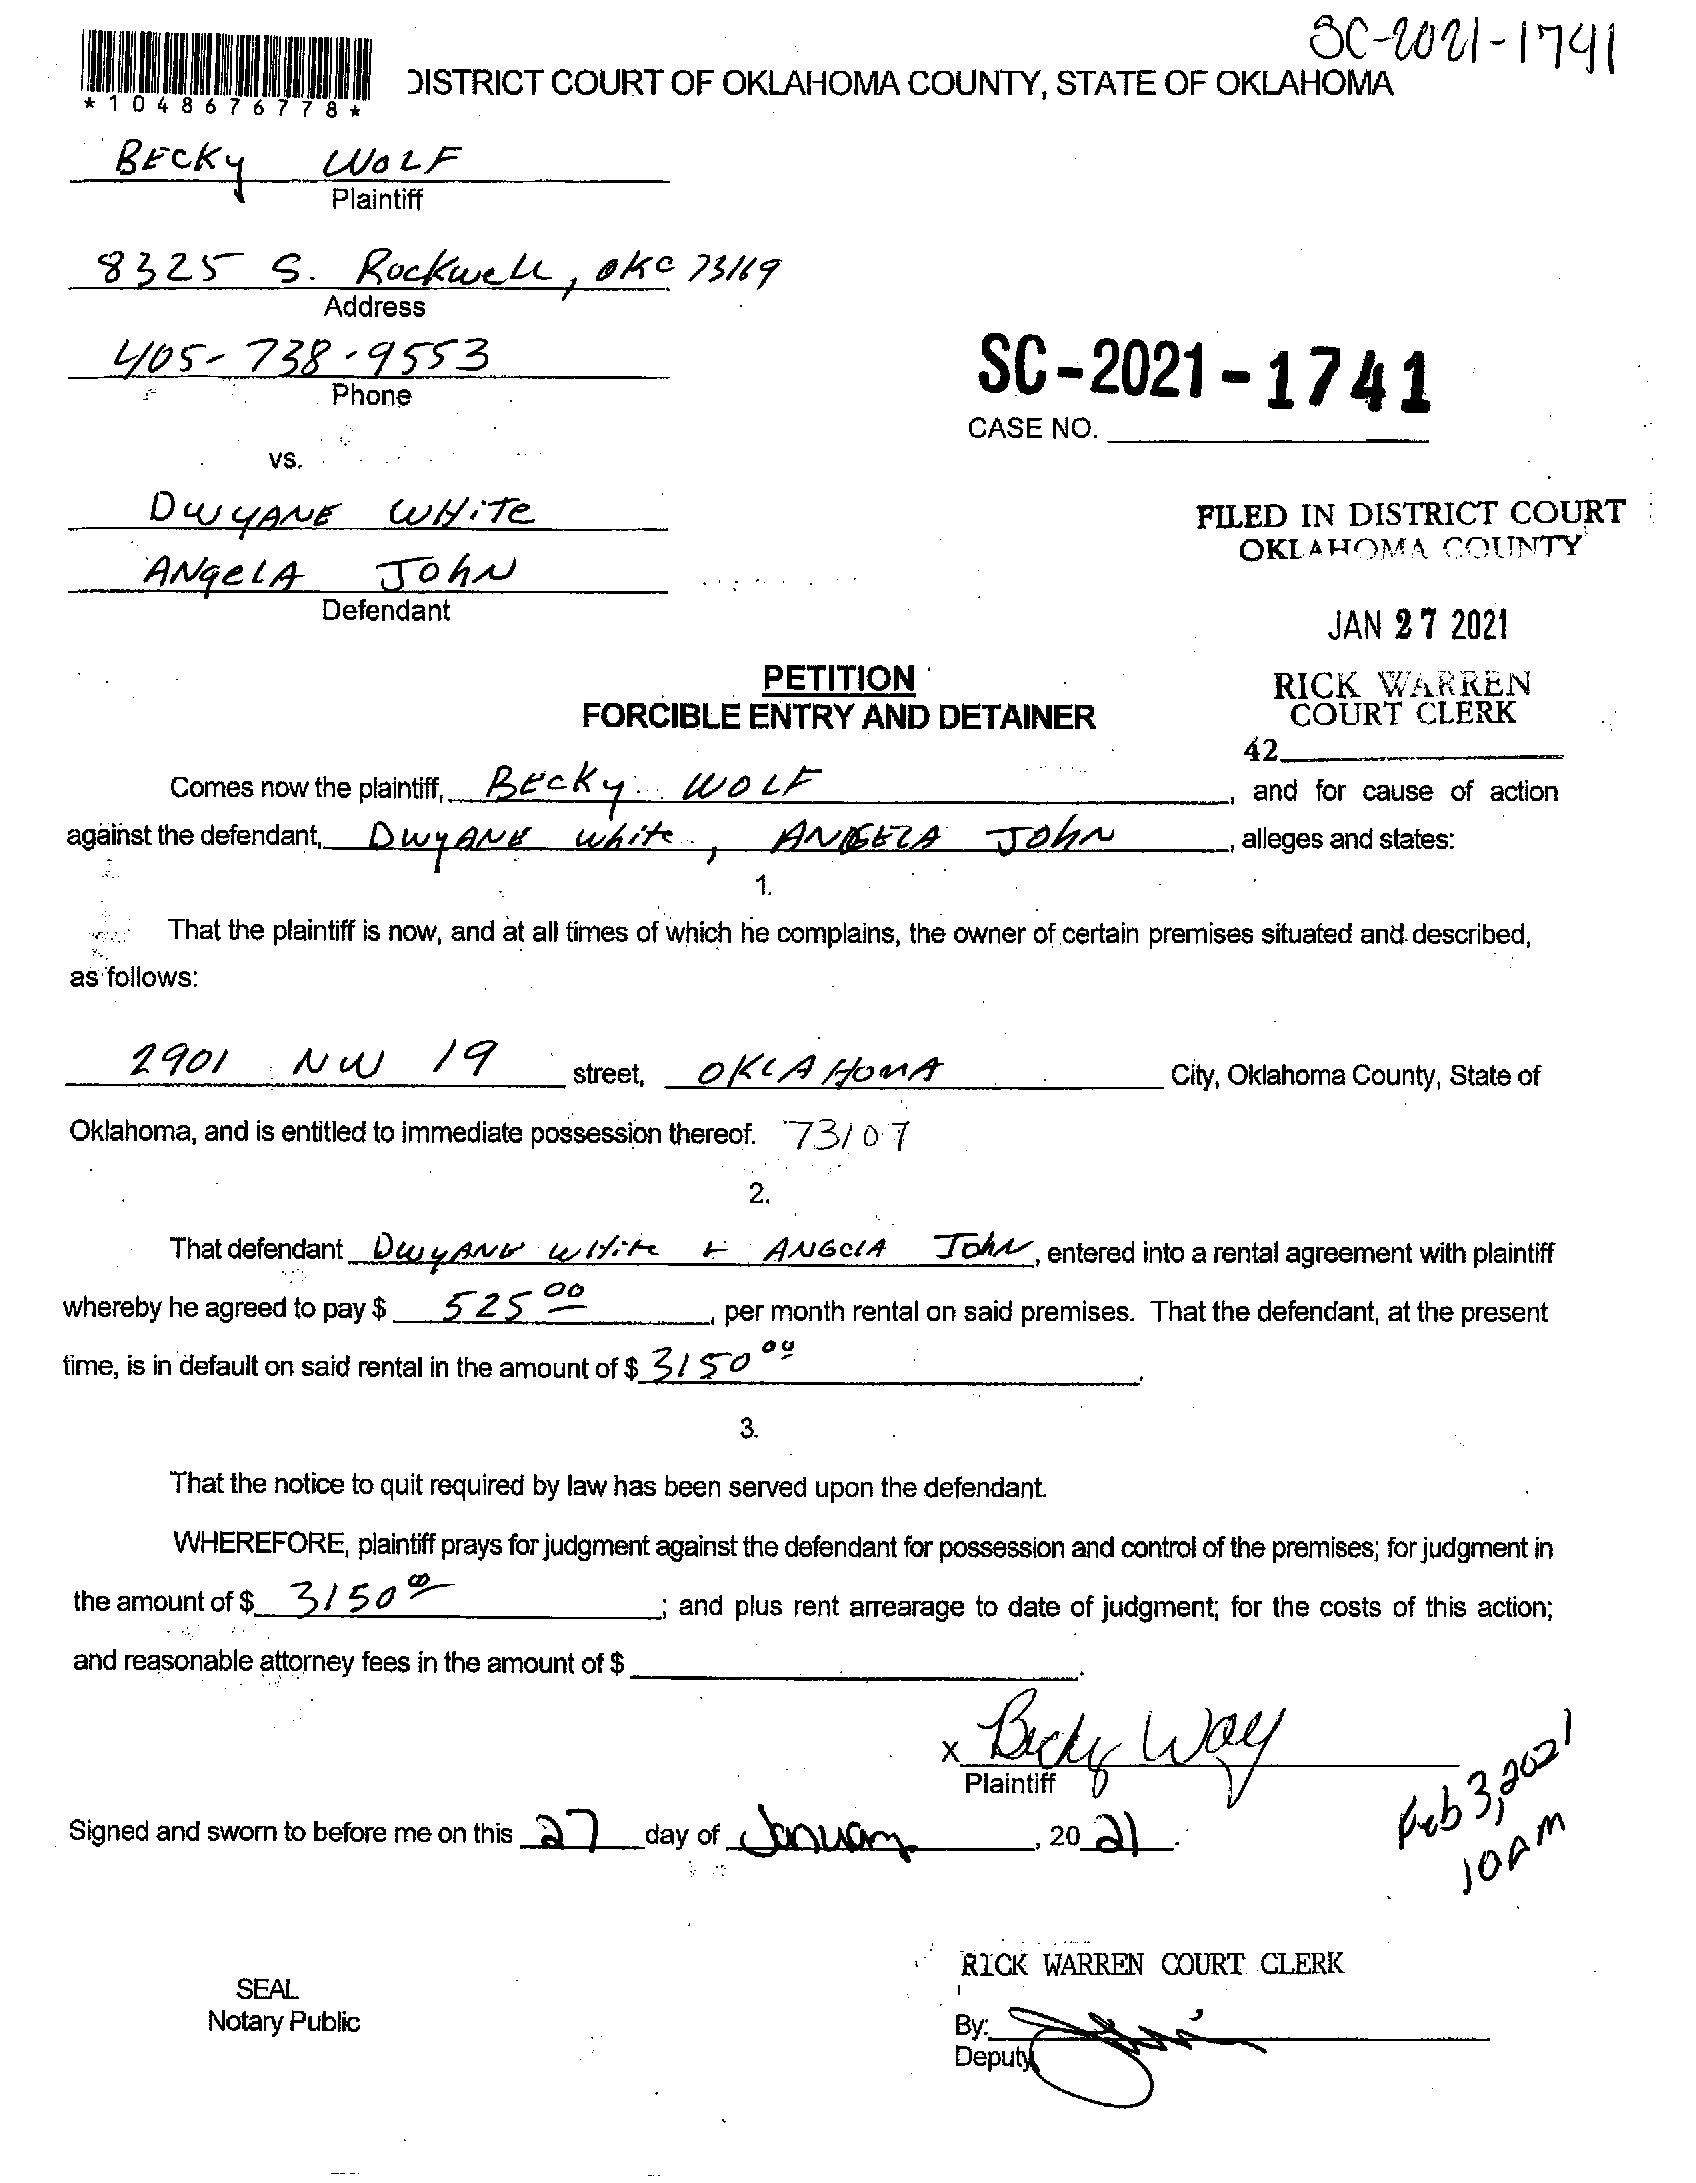 SC-2021-1741
DISTRICT COURT OF OKLAHOMA COUNTY, STATE OF OKLAHOMA
*1048676778*
BECKy WOLF
Plaintiff
8325 S. Rockwell, OKC 73169
Address
405-738-9553
Phone
SC-2021-1741
CASE NO.
vs.
DWYANE WHiTe
ANgeLA JOhN
Defendant
FILED IN DISTRICT COURT
OKLAHOMA COUNTY
JAN 27 2021
RICK WARREN
COURT CLERK
42
PETITION
FORCIBLE ENTRY AND DETAINER
Comes now the plaintiff, BECKy WOLF, and for cause of action
against the defendant, DWYANE White, ANGELA JOhN, alleges and states:
1.
That the plaintiff is now, and at all times of which he complains, the owner of certain premises situated and described,
as follows:
2901 NW 19 street, OKLAHOMA City, Oklahoma County, State of
Oklahoma, and is entitled to immediate possession thereof. 73107
2.
That defendant DWYANE WHite + ANGelA JOhN, entered into a rental agreement with plaintiff
whereby he agreed to pay $ 525 00, per month rental on said premises. That the defendant, at the present
time, is in default on said rental in the amount of $ 3150 00.
3.
That the notice to quit required by law has been served upon the defendant.
WHEREFORE, plaintiff prays for judgment against the defendant for possession and control of the premises; for judgment in
the amount of $ 3150 00; and plus rent arrearage to date of judgment; for the costs of this action;
and reasonable attorney fees in the amount of $ .
x Becky Wolf
Plaintiff
Feb 3, 2021
10 AM
Signed and sworn to before me on this 27 day of January, 20 21.
RICK WARREN COURT CLERK
SEAL
Notary Public
By:
Deputy